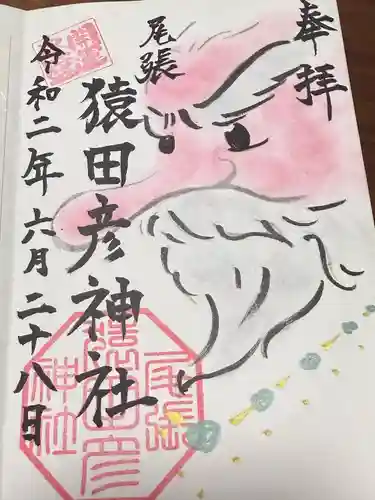 奉拝
尾張
猿田彦神社
令和二年六月二十八日
尾張
猿田彦
神社